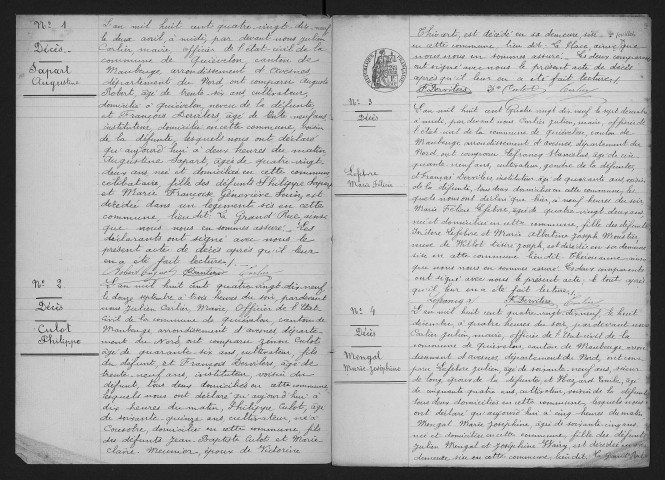 N° 1
Décès
Sapart
Augustine
L'an mil huit cent quatre vingt dix neuf
le deux avril, à midi, par devant nous Julien
Carlier, maire, officier de l'état civil de la
commune de Quiévelon, canton de
Maubeuge, arrondissement d'Avesnes
département du Nord, ont comparu Auguste
Robert, âgé de trente six ans, cultivateur,
domicilié à Quiévelon, neveu de la défunte,
et François Dervillers, âgé de trente neuf ans,
instituteur, domicilié en cette commune, voisin
de la défunte, lesquels nous ont déclaré
qu'aujourd'hui à deux heures du matin
Augustine Sapart, âgée de quatre vingt
deux ans, née et domiciliée en cette commune
célibataire, fille des défunts Philippe Sapart
et Marie Françoise Geneviève, est
décédée dans un logement sis en cette
commune, lieu dit: La Grand Rue, ainsi
que nous nous en sommes assuré. Les
déclarants ont signé avec nous le
présent acte de décès après qu'il leur
en a été fait lecture.
N° 2
Décès
Culot
Philippe
L'an mil huit cent quatre vingt dix neuf
le douze à trois heures du soir, par devant
nous Julien Carlier, Maire, Officier de l'Etat
civil de la commune de Quiévelon, canton de
Maubeuge arrondissement d'Avesnes départe-
ment du Nord, ont comparu Culot
âgé de quarante six ans, cultivateur, fils
du défunt, et François Dervillers, âgé de
trente neuf ans, instituteur, voisin du
défunt, tous deux domiciliés en cette commune
lesquels nous ont déclaré qu'aujourd'hui à
dix heures du matin, Philippe Culot, âgé
de soixante quinze ans, cultivateur, né à
Cousolre, domicilié en cette commune, fils
des défunts Jean Baptiste Culot et Marie
Claire Meunier, époux de Victorine
Thinart, est décédé en sa demeure sise
en cette commune, lieu dit: La Place, ainsi que
nous nous en sommes assuré. Les deux comparants
ont signé avec nous le présent acte de décès
après qu'il leur en a été fait lecture.
N° 3
Décès
Lefebvre
Marie
L'an mil huit cent quatre vingt dix neuf le sept
à midi, par devant nous Carlier Julien, maire, officier de
l'état civil de la commune de Quiévelon, canton de
Maubeuge arrondissement d'Avesnes département du
Nord, ont comparu Stanislas, âgé de cin-
quante neuf ans, cultivateur, gendre de la défunte,
et François Dervillers, âgé de quarante ans, voisin
de la défunte, tous deux domiciliés en cette commune, les-
quels nous ont déclaré que hier, à neuf heures du soir
Marie Lefebvre, âgée de quatre vingt deux ans
née et domiciliée en cette commune, fille des défunts
Isidore Lefebvre et Marie Albertine Joseph
veuve de Joseph, est décédée en sa demeure
sise en cette commune, lieu dit: ainsi que
nous nous en sommes assuré. Les deux comparants
ont signé avec nous le présent acte, le tout après
qu'il leur en a été fait lecture.
N° 4
Décès
Mengal
Marie Joséphine
L'an mil huit cent quatre vingt dix neuf, le huit
à quatre heures du soir, par devant nous
Carlier Julien, maire, officier de l'Etat civil de la commune
de Quiévelon, canton de Maubeuge arrondis-
sement d'Avesnes département du Nord, ont com-
paru Lefebvre Julien, âgé de soixante neuf ans,
de la défunte et Emile, âgé
de cinquante quatre ans, voisin de la défunte
tous deux domiciliés en cette commune, lesquels nous
ont déclaré qu'aujourd'hui à cinq heures du matin
Mengal Marie Joséphine, âgée de soixante cinq ans,
née et domiciliée en cette commune, fille des défunts
Julien Mengal et Joséphine, est décédée en sa
demeure sise en cette commune, lieu dit: La Grand Rue